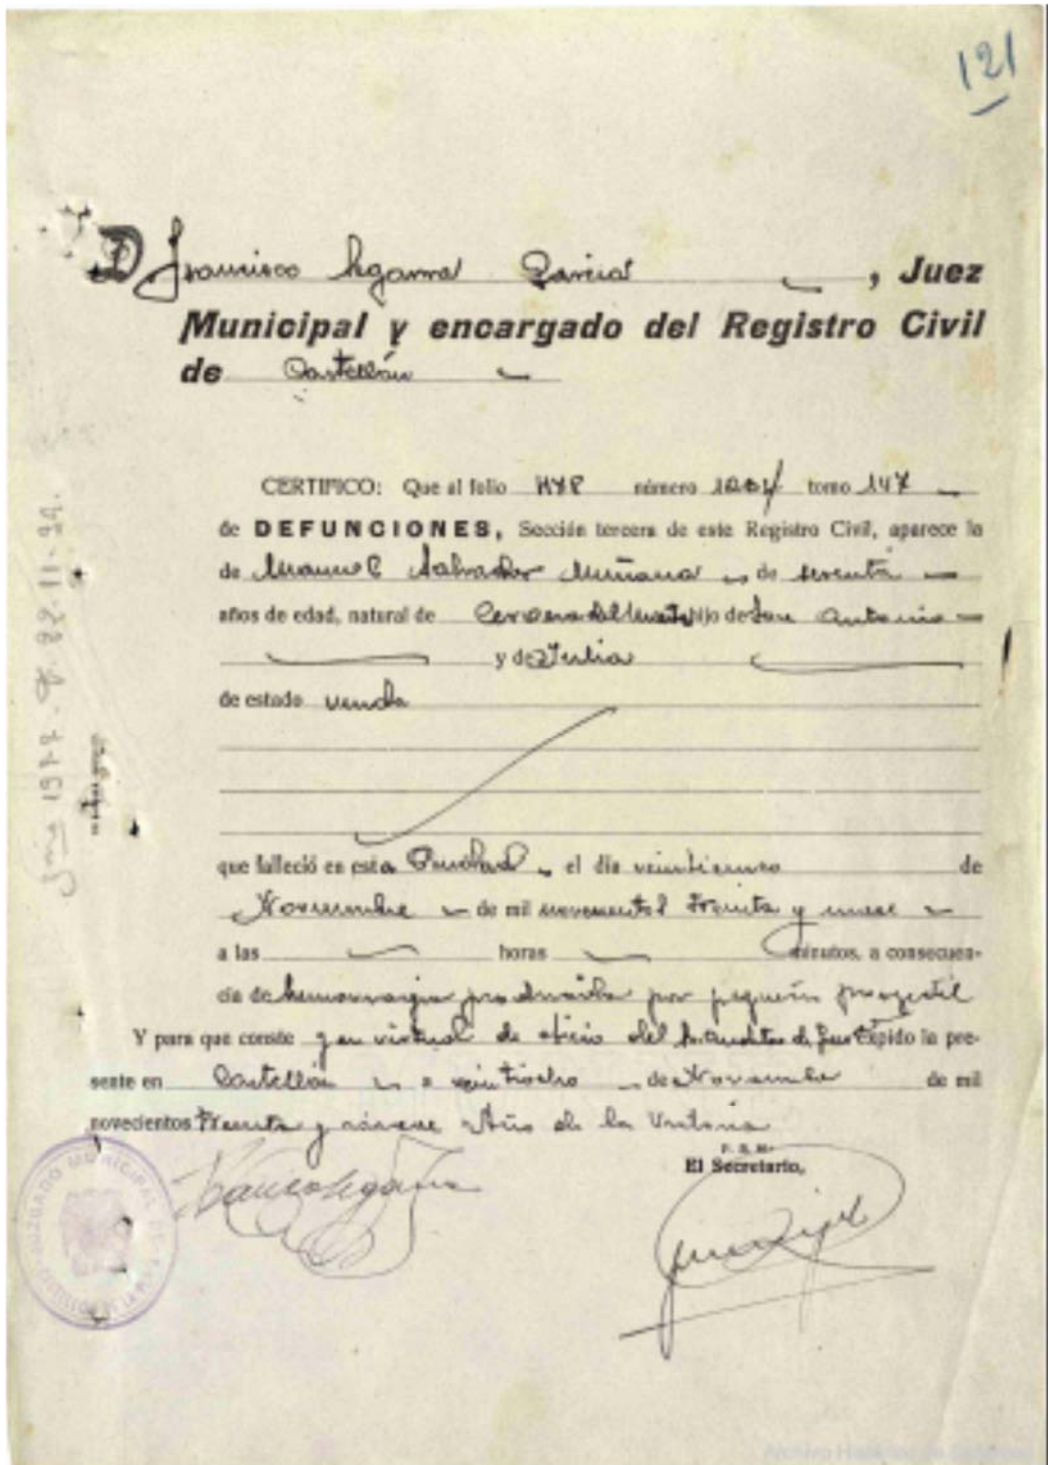 121
D Francisco Segarra García, Juez
Municipal y encargado del Registro Civil
de Castellón
CERTIFICO: Que al folio número tomo 147
de DEFUNCIONES, Sección tercera de este Registro Civil, aparece la
de Manuel Salvador Muñana de
años de edad, natural de Cervera del hijo de Antonio
y de Julia
de estado
que falleció en esta Ciudad el día de
Noviembre de mil novecientos treinta y nueve
a las horas minutos, a consecuen-
cia de hemorragia producida por pequeño proyectil
Y para que conste y en virtud de oficio del expido la pre-
sente en Castellón a veintiocho de Noviembre de mil
novecientos treinta y nueve Año de la Victoria
P. S. M.
El Secretario,
JUZGADO MUNICIPAL DE